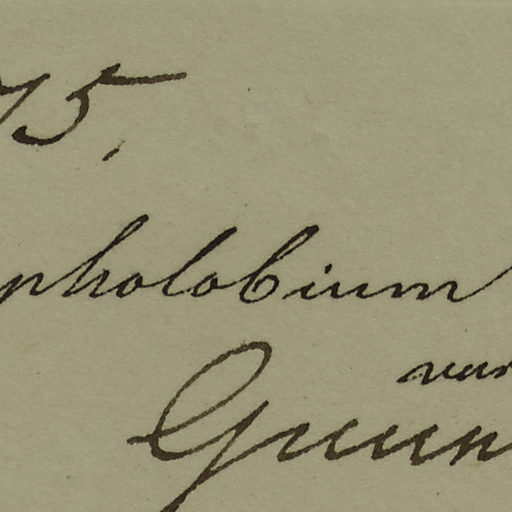 75,
pholobium
var
Guun